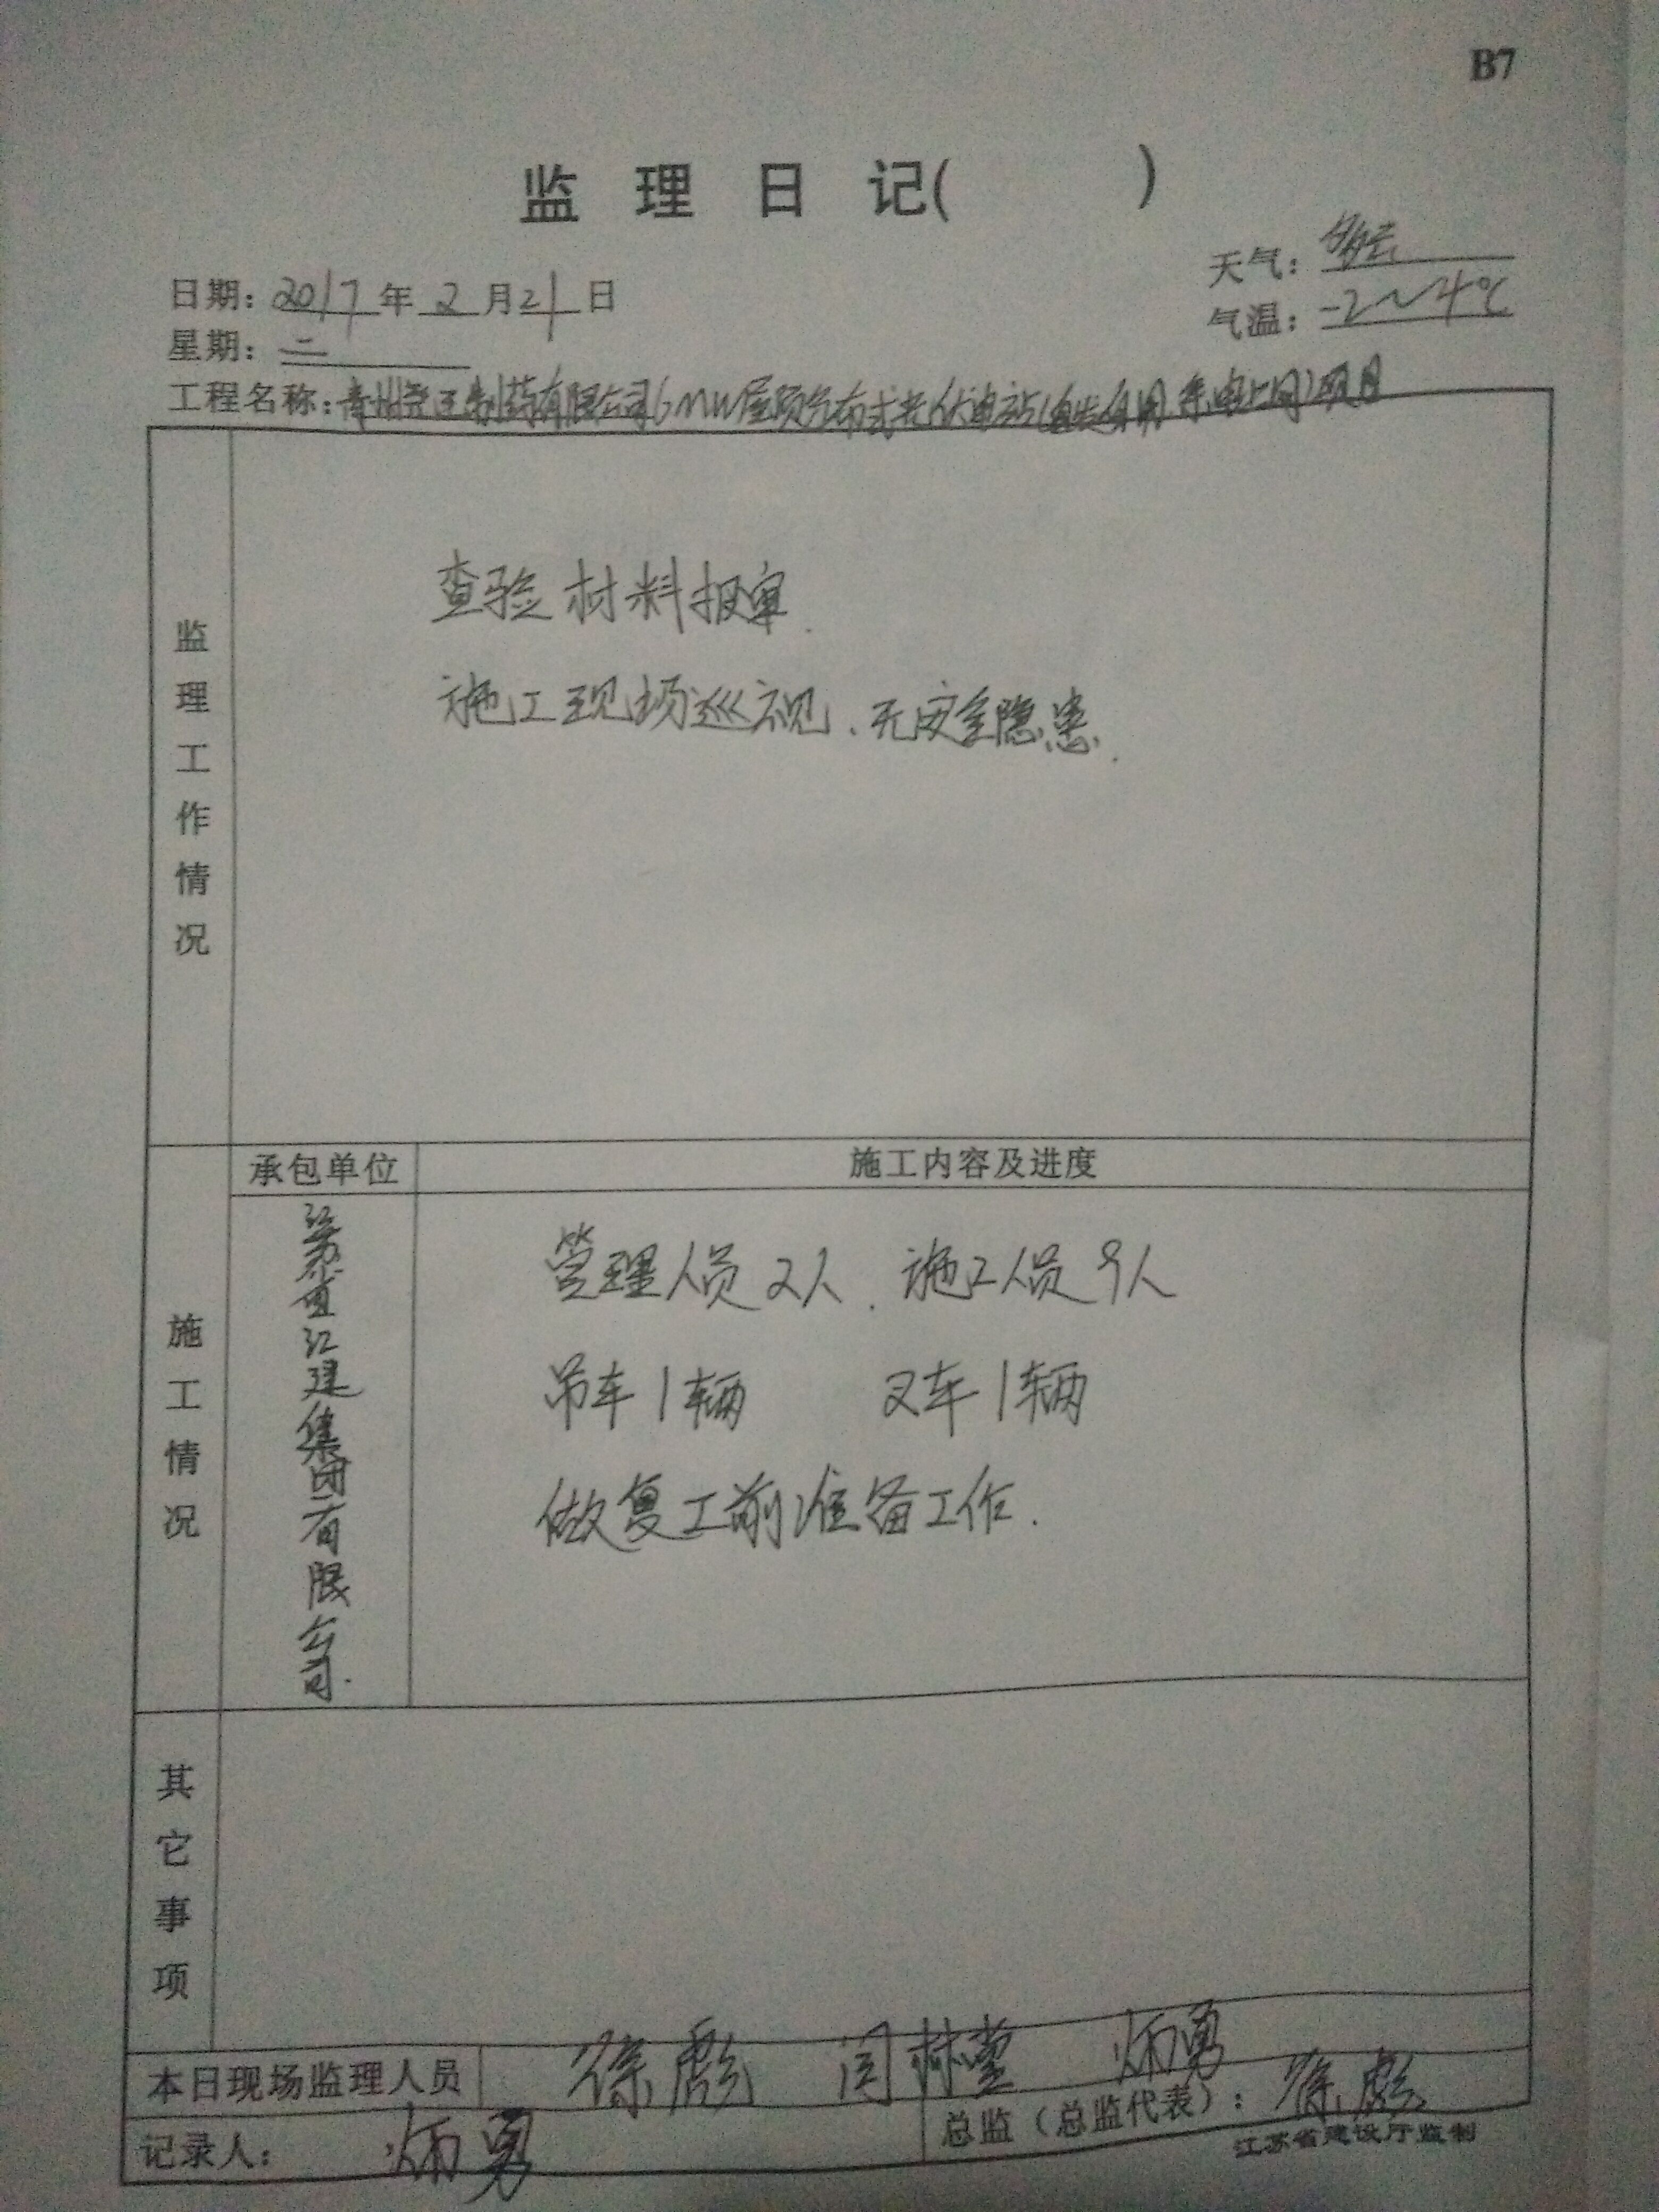 B7
监理日记( )
天气：多云
日期：2017年2月21日
气温：-2～4℃
星期：二
工程名称：青州尧王制药有限公司6MW屋顶分布式光伏电站(自发自用余电上网)项目
监理工作情况
查验材料报审.
施工现场巡视、无安全隐患.
施工情况
承包单位
施工内容及进度
江苏省江建集团有限公司.
管理人员2人、施工人员9人
吊车1辆 叉车1辆
做复工前准备工作.
其它事项
本日现场监理人员 徐彪 闫林堂 炳勇
记录人： 炳勇
总监（总监代表）：徐彪
江苏省建设厅监制